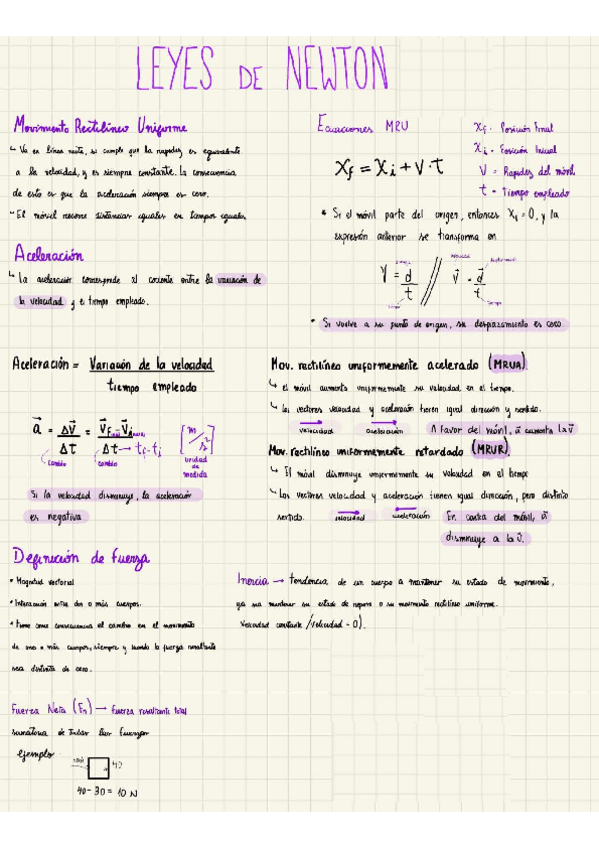 LEYES DE NEWTON
Movimiento Rectilíneo Uniforme
↳ Va en línea recta, si cumple que la rapidez es equivalente
a la velocidad, y es siempre constante. La consecuencia
de esto es que la aceleración siempre es cero.
- El móvil recorre distancias iguales en tiempos iguales.
Ecuaciones MRU
Xf = Xi + V · t
Xf - Posición Final
Xi - Posición Inicial
V = Rapidez del móvil
t - Tiempo empleado
* Si el móvil parte del origen, entonces Xi = 0, y la
expresión anterior se transforma en
V = d / t // v = d / t
• Si vuelve a su punto de origen, su desplazamiento es cero.
Aceleración
↳ La aceleración corresponde al cociente entre la variación de
la velocidad y el tiempo empleado.
Aceleración = Variación de la velocidad
tiempo empleado
a = ΔV / Δt = Vf - Vi / Δt → tf - ti [m/s²]
cambio cambio unidad de medida
Si la velocidad disminuye, la aceleración
es negativa
Mov. rectilíneo uniformemente acelerado (MRUA).
↳ el móvil aumenta uniformemente su velocidad en el tiempo.
↳ los vectores velocidad y aceleración tienen igual dirección y sentido.
velocidad aceleración A favor del móvil, a aumenta la v
Mov. rectilíneo uniformemente retardado (MRUR).
↳ El móvil disminuye uniformemente su velocidad en el tiempo
↳ Los vectores velocidad y aceleración tienen igual dirección, pero distinto
sentido. velocidad aceleración En contra del móvil, a
disminuye a la v.
Definición de Fuerza
• Magnitud vectorial
• Interacción entre dos o más cuerpos.
• tiene como consecuencia el cambio en el movimiento
de uno o más cuerpos, siempre y cuando la fuerza resultante
sea distinta de cero.
Inercia → tendencia de un cuerpo a mantener su estado de movimiento,
ya sea mantener su estado de reposo o su movimiento rectilíneo uniforme.
Velocidad constante / velocidad = 0).
Fuerza Neta (Fn) → Fuerza resultante total
sumatoria de todas las fuerzas
ejemplo
40
40 - 30 = 10 N